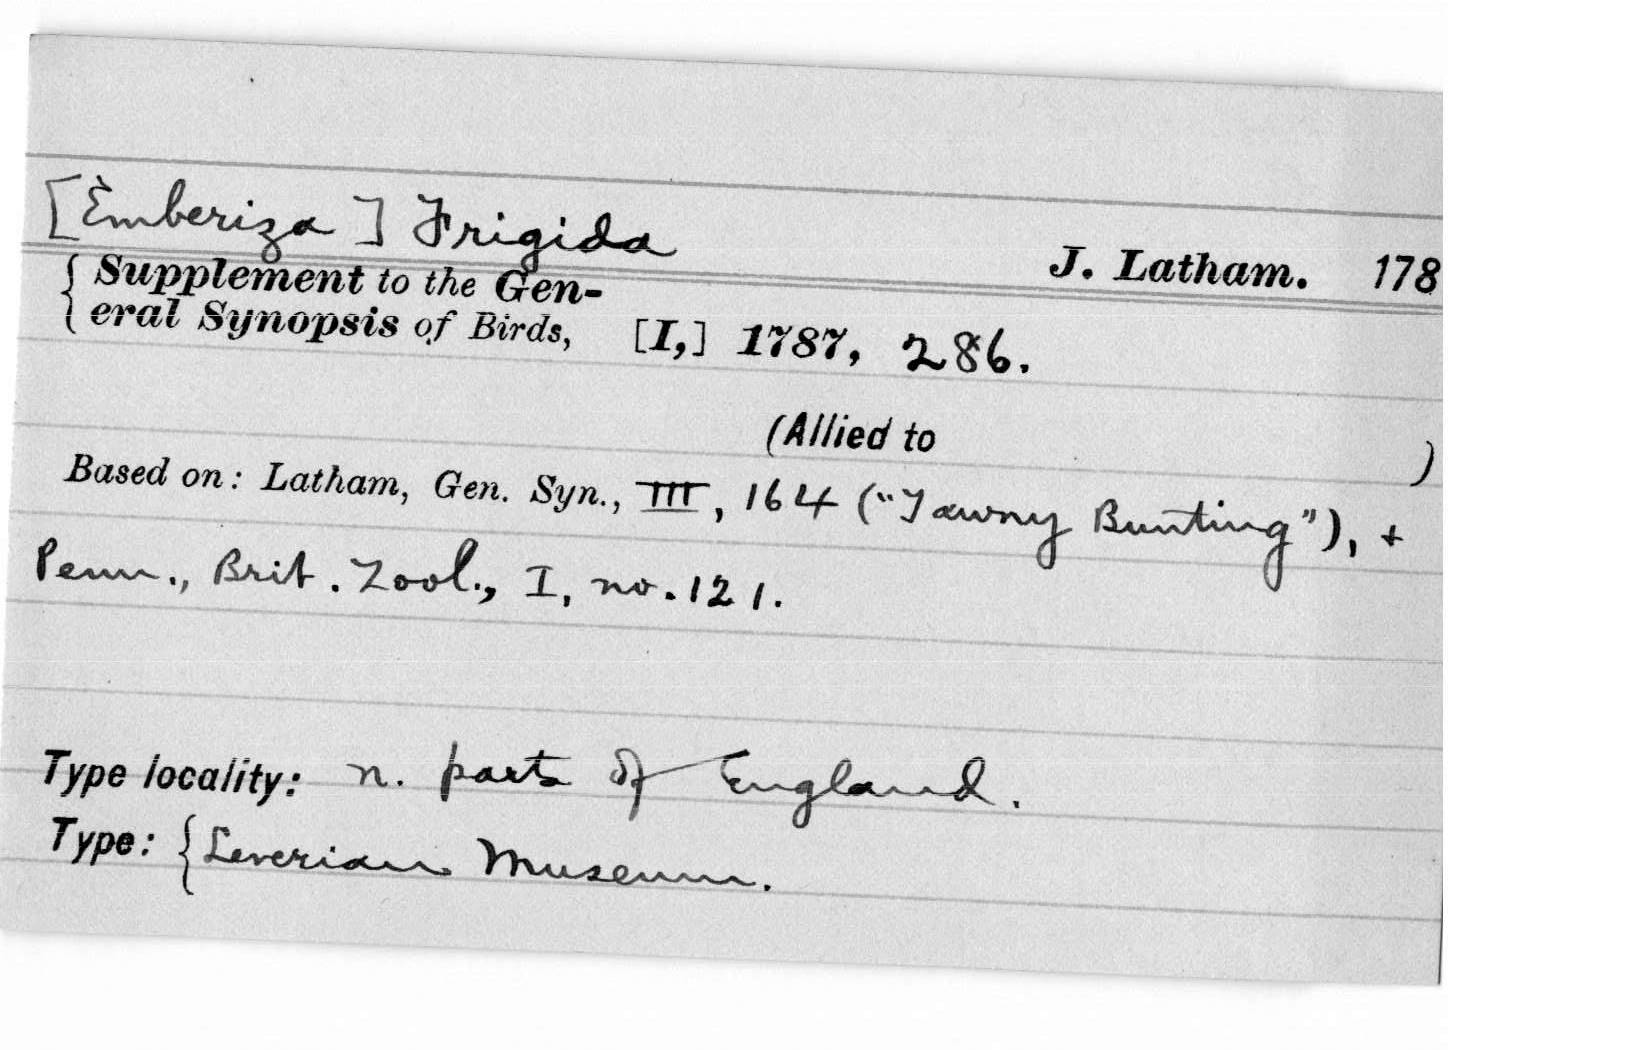 [Emberiza] Frigida
J. Latham. 178
{ Supplement to the Gen-
eral Synopsis of Birds, [I,] 1787, 286.
(Allied to )
Based on: Latham, Gen. Syn., III, 164 ("Tawny Bunting"), +
Penn., Brit. Zool., I, no. 121.
Type locality: n. parts of England.
Type: { Leverian Museum.